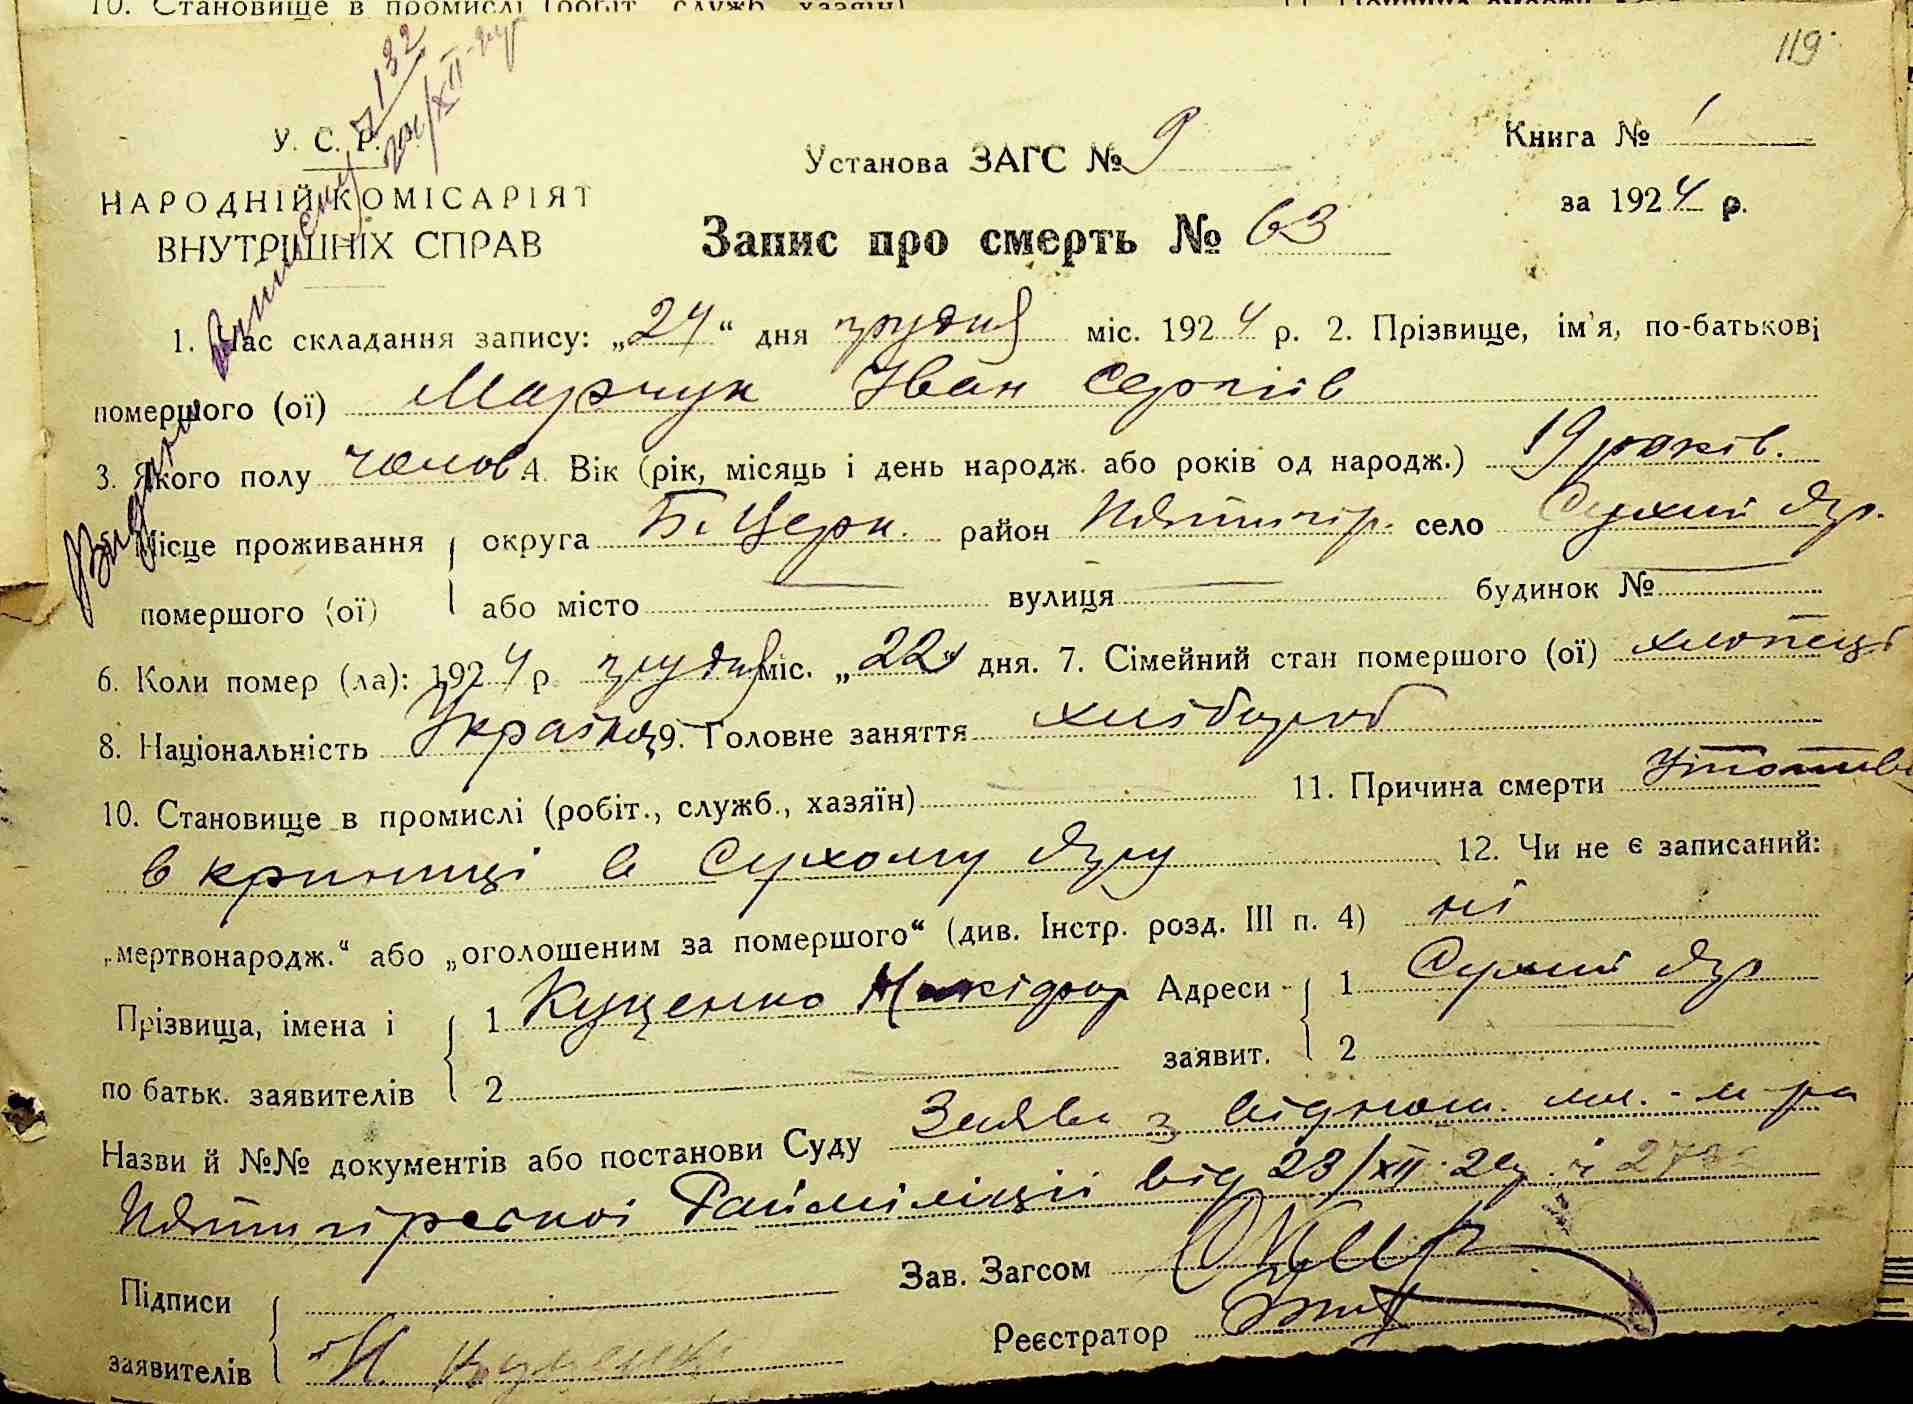 10. Становище в промислі (робіт., служб., хазяїн)
119
У. С. Р.
НАРОДНІЙ КОМІСАРІЯТ
ВНУТРІШНІХ СПРАВ
Установа ЗАГС № 9
Книга № 1
за 1924 р.
Запис про смерть № 63
Виписку 132
Видано
1. Час складання запису: „24“ дня грудня міс. 1924 р. 2. Прізвище, ім'я, по-батькові
помершого (ої) Марчук Іван Сергіїв
3. Якого полу чолов. 4. Вік (рік, місяць і день народж. або років од народж.) 19 років.
5. Місце проживання округа Б. Церк. район Пятигір. село Сухий Яр.
помершого (ої) або місто — вулиця — будинок № —
6. Коли помер (ла): 1924 р. грудня міс. „22“ дня. 7. Сімейний стан помершого (ої) хлопець
8. Національність Українец 9. Головне заняття хлібороб
10. Становище в промислі (робіт., служб., хазяїн) — 11. Причина смерти
в криниці в Сухому Яру 12. Чи не є записаний:
„мертвонародж.“ або „оголошеним за помершого“ (див. Інстр. розд. III п. 4) ні
Прізвища, імена і 1 Куценко Никіфор Адреси 1 Сухий Яр
по батьк. заявителів 2 заявит. 2
Назви й №№ документів або постанови Суду Заява з віднош.
Пятигірської Райміліції від 23/XII-24
Зав. Загсом
Підписи
Реєстратор
заявителів Н. Куценко